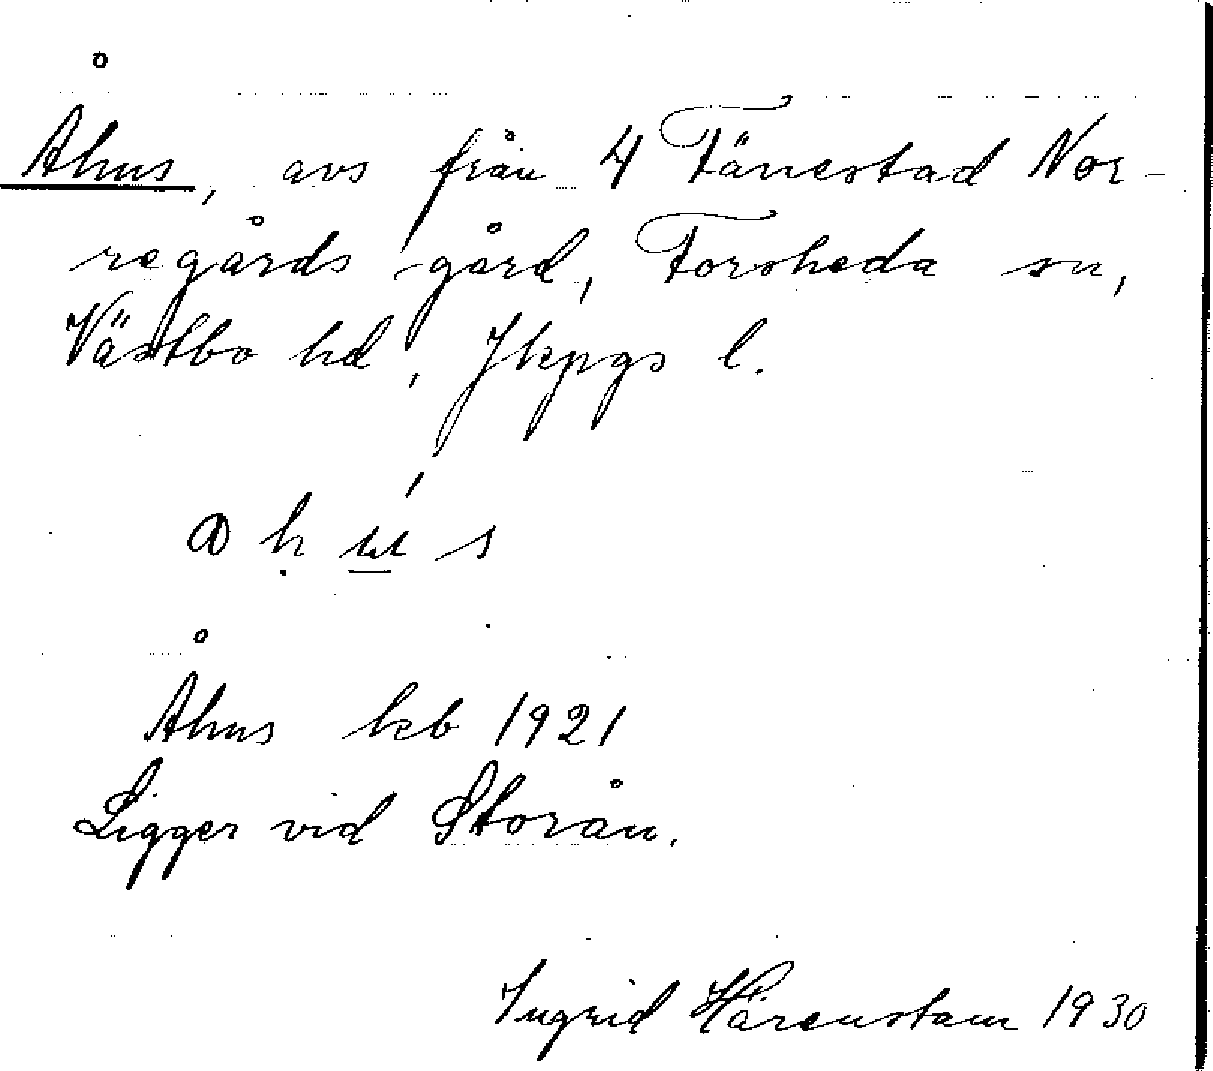 Åhus, avs från 4 Tånestad Nor-
regårds gård, Forsheda sn,
Västbo hd, Jkpgs l.
Åhus kb 1921
Ligger vid Storån.
Ingrid Härenstam 1930